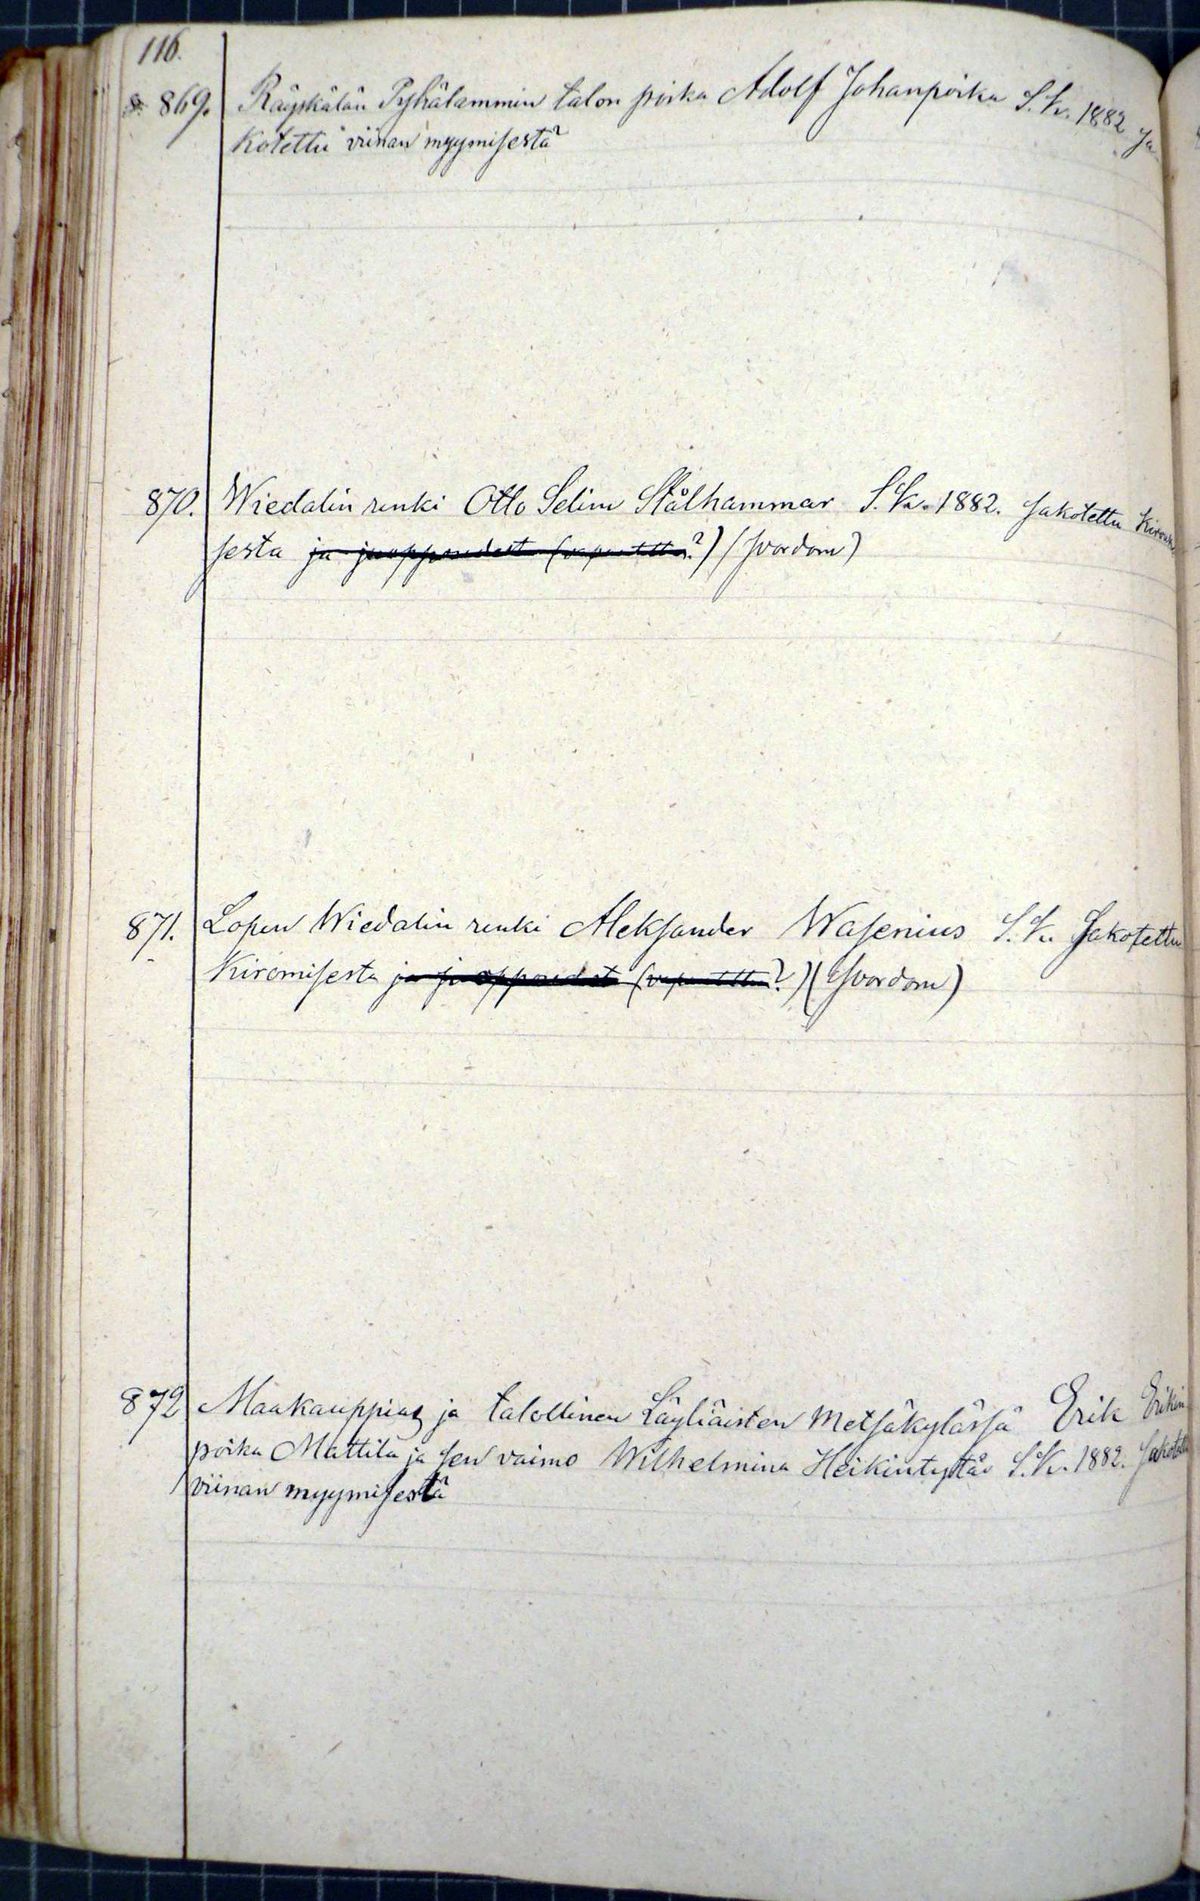 116.
869. Räyskälän Pyhälammin talon poika Adolf Johanpoika S. K. 1882 sa
kotettu viinan myymisestä
870. Wiedalin renki Otto Selim Stålhammar S. K. 1882. sakotettu Kiromi
sesta ja juoppoudesta (vapautettu?) (svordom)
871. Lopen Wiedalin renki Aleksander Wasenius S. K. Sakotettu
Kiromisesta ja juoppoudesta (vapautettu?) (Svordom)
872 Maakauppias ja talollinen Läyliäisten Metsäkylässä Erik Erikin
poika Mattila ja sen vaimo Wilhelmina Heikintytär S. K. 1882. Sakotettu
viinan myymisestä